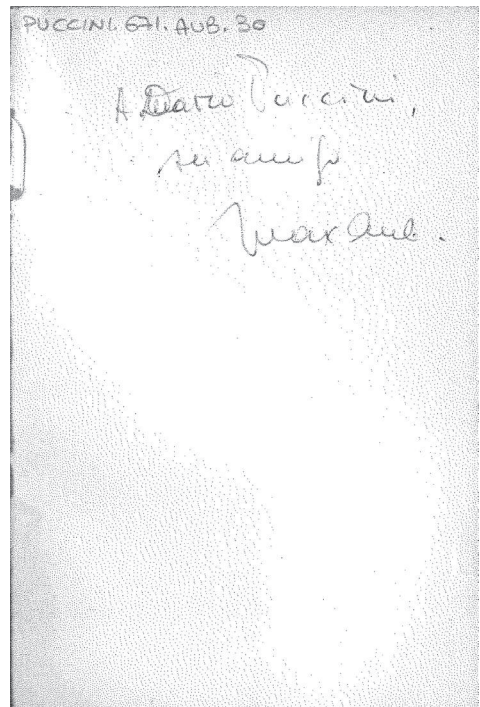 PUCCINI. 671. AUB. 30
A Dario Puccini,
su amigo
Max Aub.